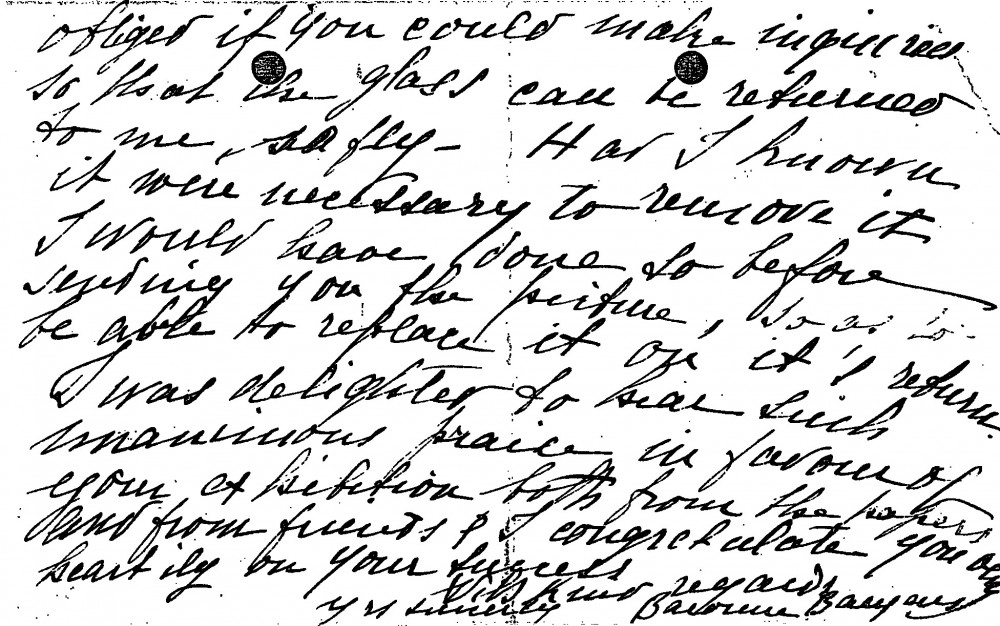 obliged if you could make inquiries
so that the glass can be returned
to me, safly - Had I known
it were necessary to remove it
I would have done so before
sending you the picture, so as to
be able to replace it on it's return.
I was delighted to hear such
unanimous praise in favour of
your exhibition both from the papers
and from friends & I congratulate you
heartily on your success
With kind regards
yrs sincerely Baronne